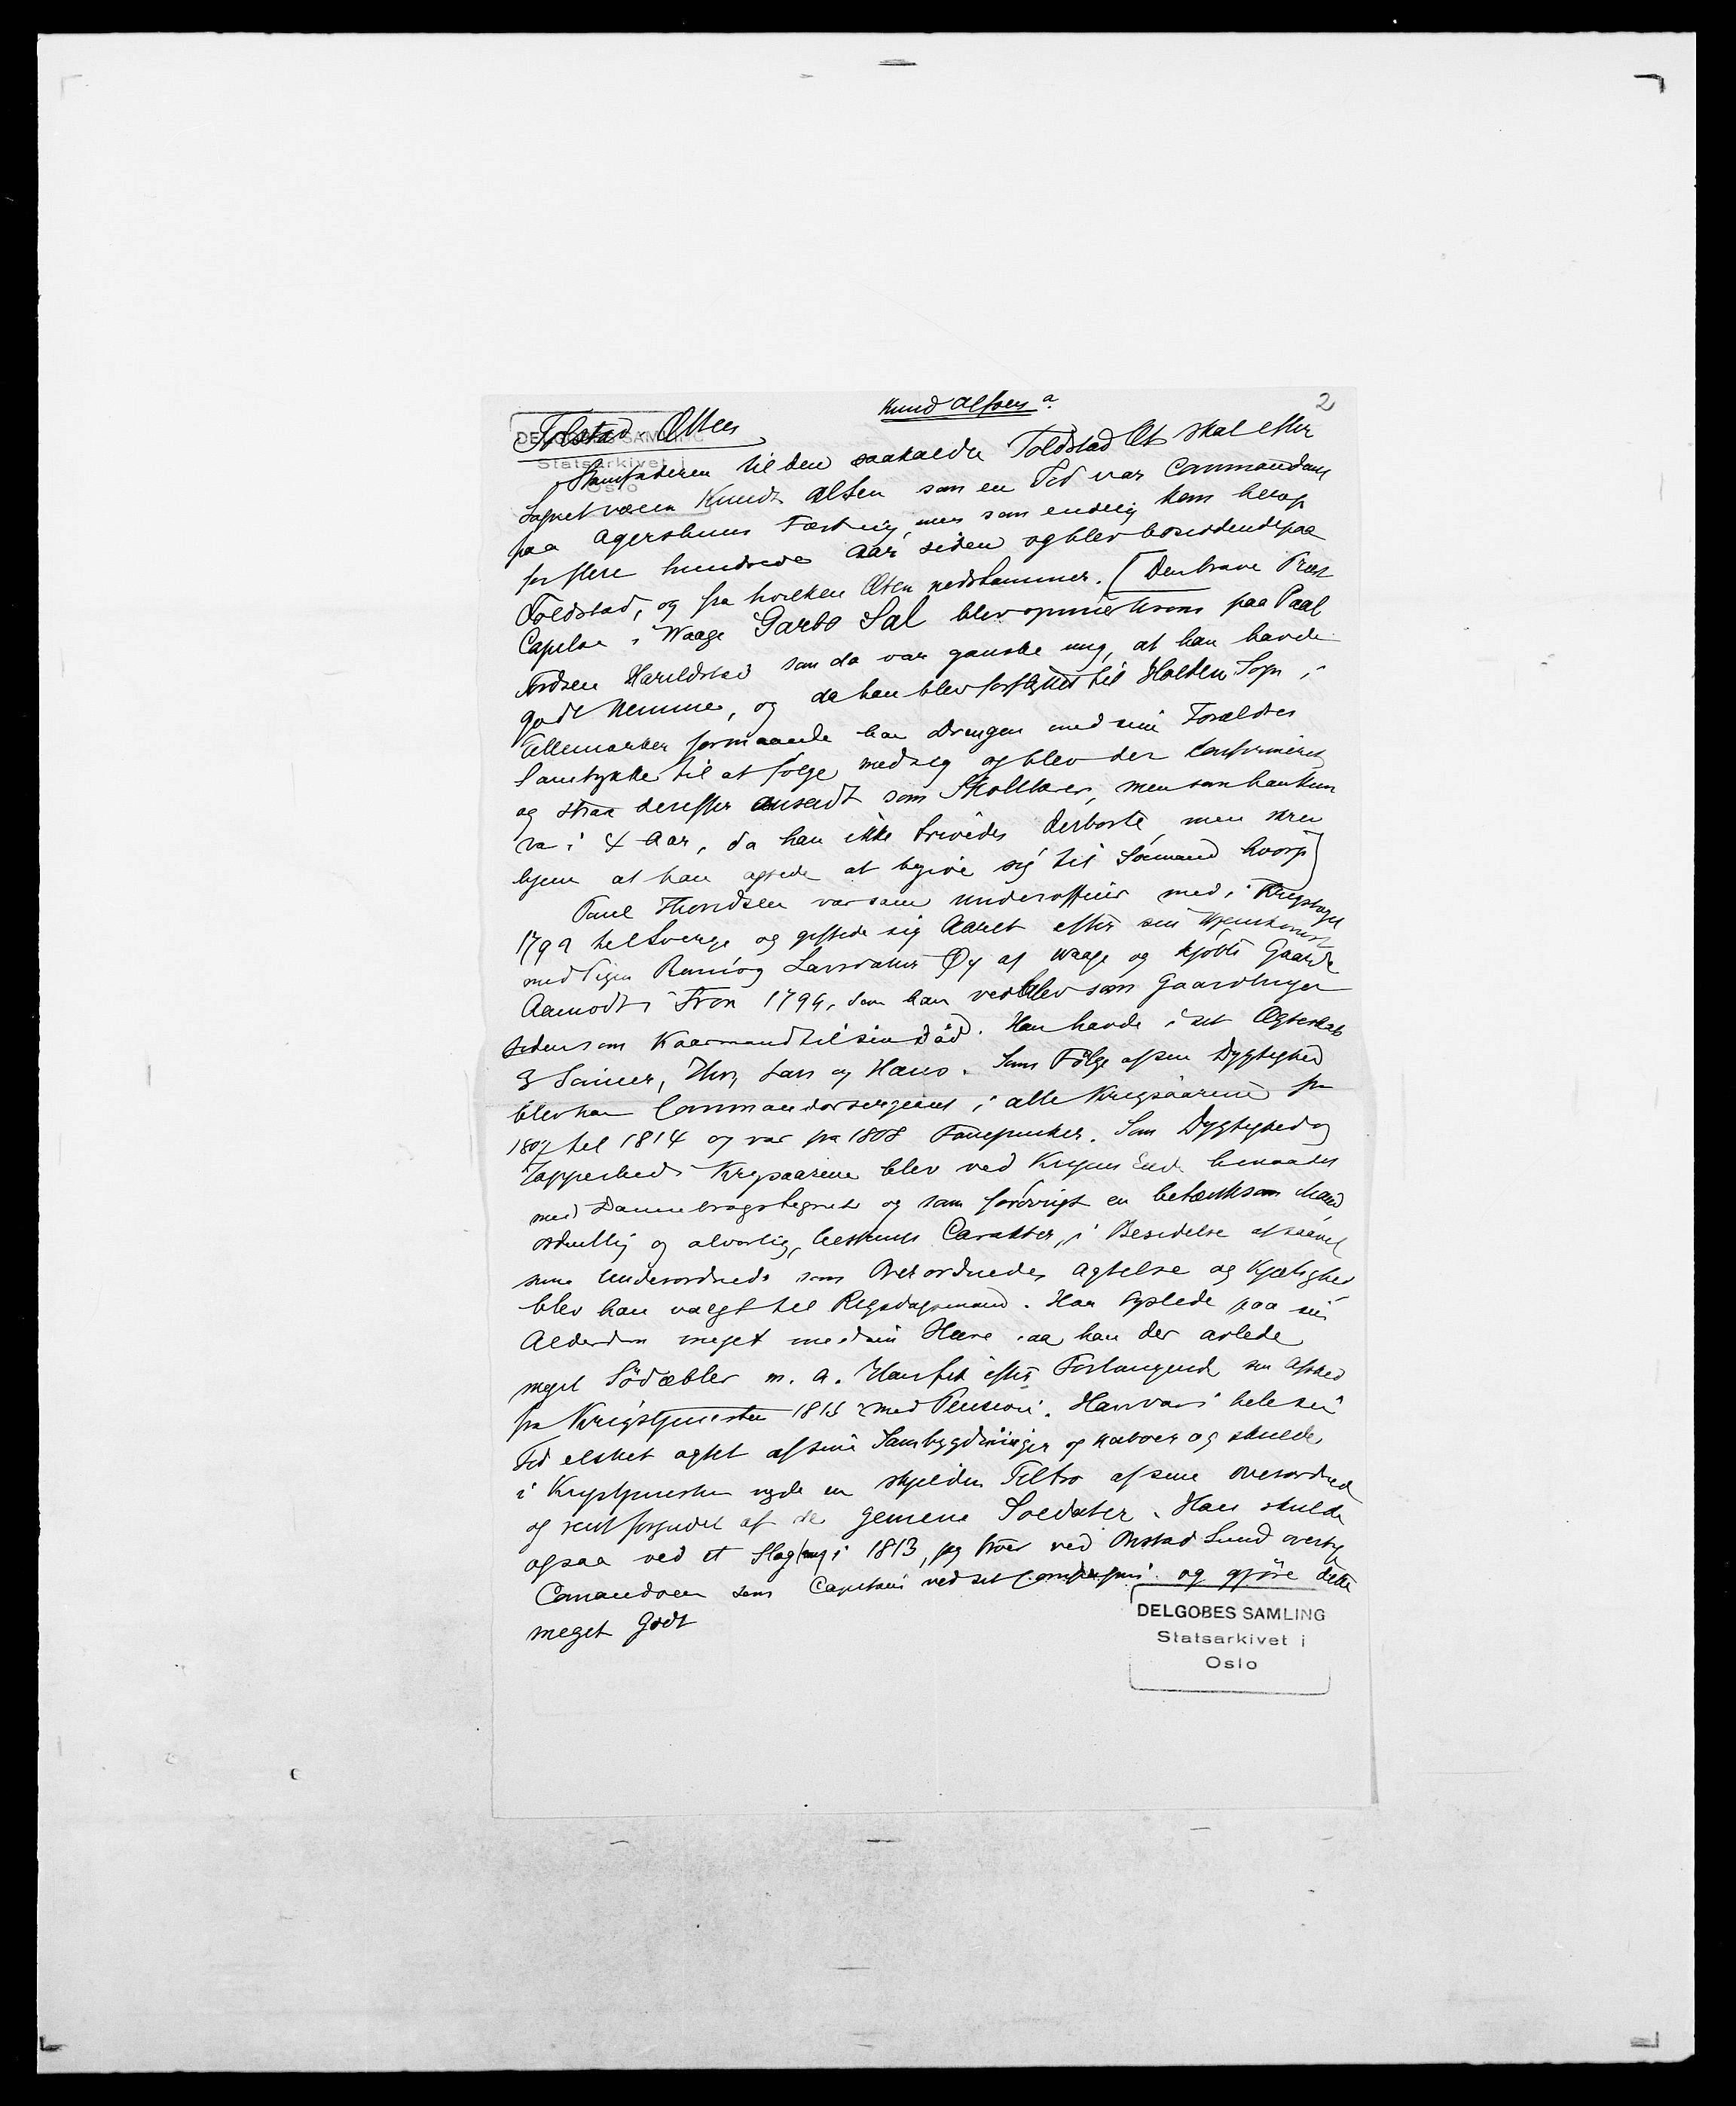 Knud Alfsen a. 2
Tolstad Ætten
DELGOBES SAMLING
Statsarkivet i
Oslo
Stamfaderen til den saakaldte Toldstad Æt skal efter
Sagnet være Knud Alfsen som en Tid var Commandant
paa Agershuus Fæstning, men som endelig kom herop
for flere hundrede Aar siden og blev bosiddende paa
Toldstad, og fra hvilken Æten nedstammer. [Den brave Præst
Capelan i Waage Garbo Sal blev opmerksom paa Paal
Hareldstad som da var ganske ung, at han havde
godt Nemme, og da han blev forflyttet til Holten Sogn i
Tellemarken formaaede han Drengen med sine Forældres
Samtykke til at følge med sig og blev der confirmeret
og strax derefter ansadt som Skolelærer, men som han kun
var i 4 Aar, da han ikke trivedes derborte, men skrev
hjem at han agtede at begive sig til
Paul Thordsen var som underofficer med i Krigstoget
til Sverge og giftede sig Aaret efter sin Hjemkomst
med Pigen Larsdatter Øy af Waage og kjøbte Gaarden
Aamodt i Fron 1794, som han vedblev som Gaardbruger
siden som Kaarmand til sin Død. Han havde i sit Ægteskab
3 Sønner, Thor, Lars og Hans. Som Følge af sin Dygtighed
blev han Commandersergeant i alle Krigsaarene fra
1807 til 1814 og var fra 1808 Fanejunker. Som Dygtighed og
Tapperhed i Krigsaarene blev ved Krigens Ende benaadet
med Dannebrogstegnet og som forövrigt en betænksom Mand
ordentlig og alvorlig, bestemt Carakter, i Besidelse af saavel
sine Underordnede som Overordnedes Agtelse og Kjærlighed
blev han valgt til Rigsdagsmand. Han syslede paa sin
Alderdom meget med sin Have saa han der avlede
meget Södæbler m. a. Han fik efter Forlangende sin Afsked
fra Krigstjenesten 1815 med Pension. Han var i hele sin
Tid elsket agtet af sine Sambygdninger og naboer og skulde
i Krigstjenesten nyde en skjelden Tiltro af sine overordnede
og rent forgudet af de gemene Soldater. Han skulde
ogsaa ved et Slag i 1813, jeg troer ved Sund overtog
Comandoen som Capitain ved sit Compagni og gjöre dette
meget godt
DELGOBES SAMLING
Statsarkivet i
Oslo